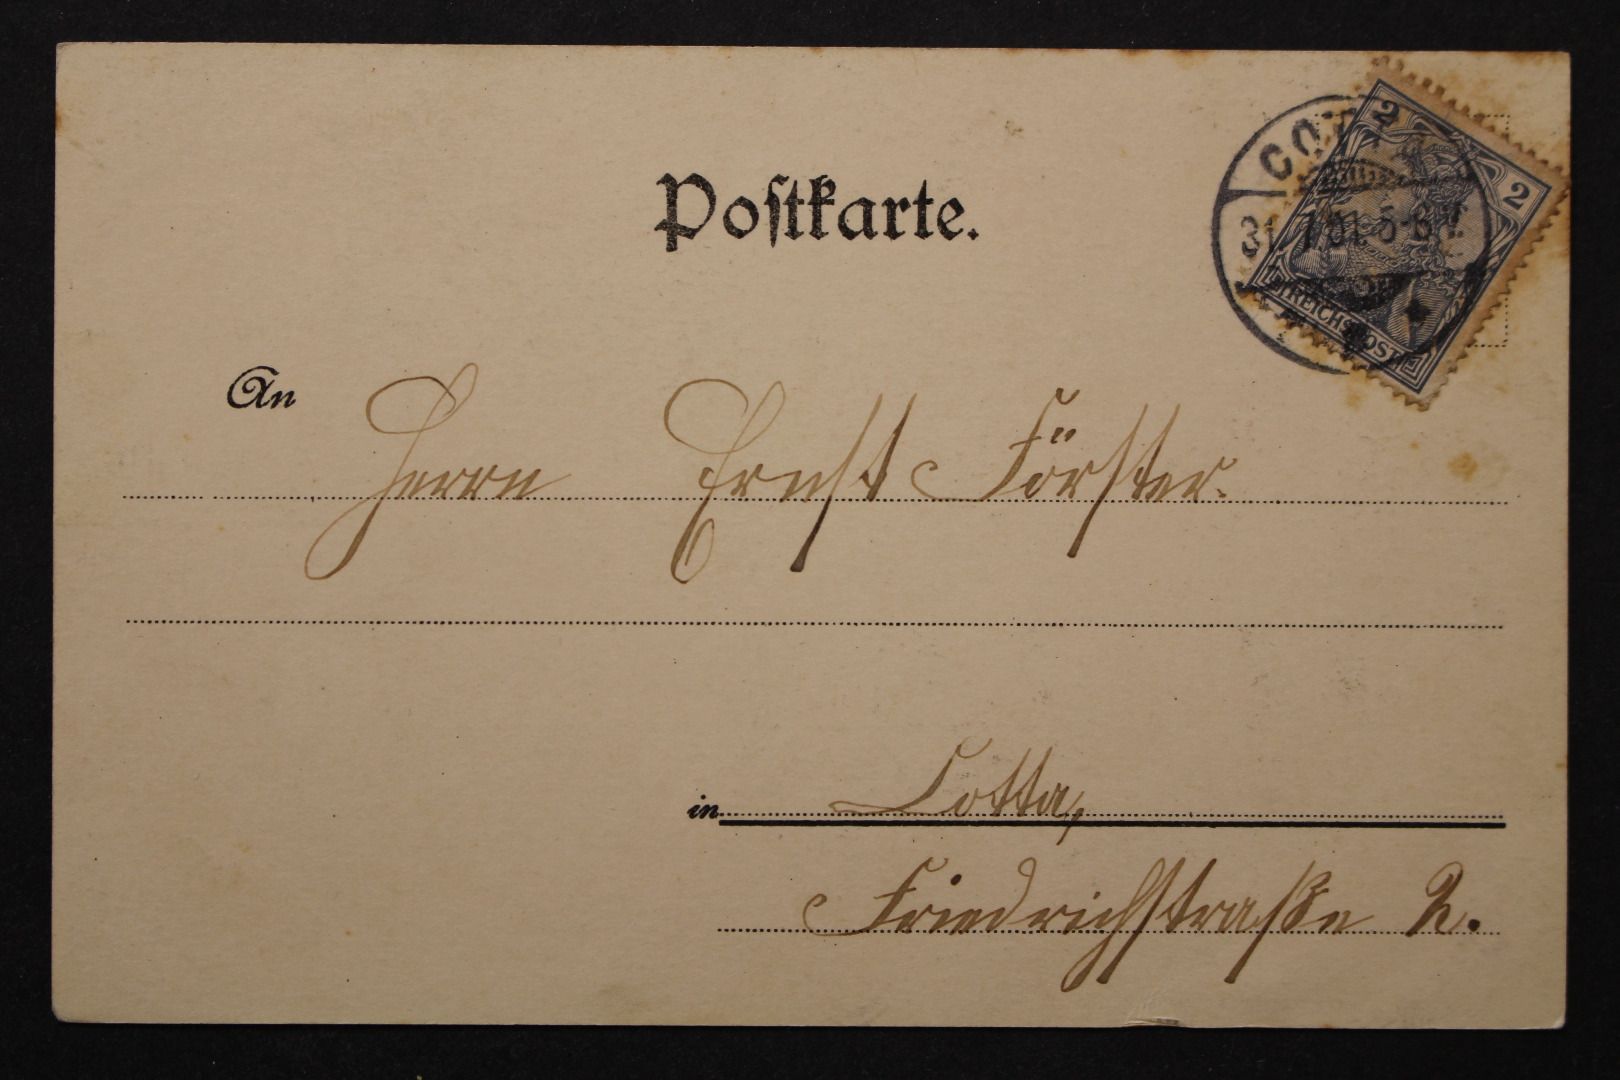 Postkarte.
2
2
REICHSPOST
31. 7. 01. 5-6 V.
An Herrn Ernst Förster.
in Cotta,
Friedrichstraße 2.